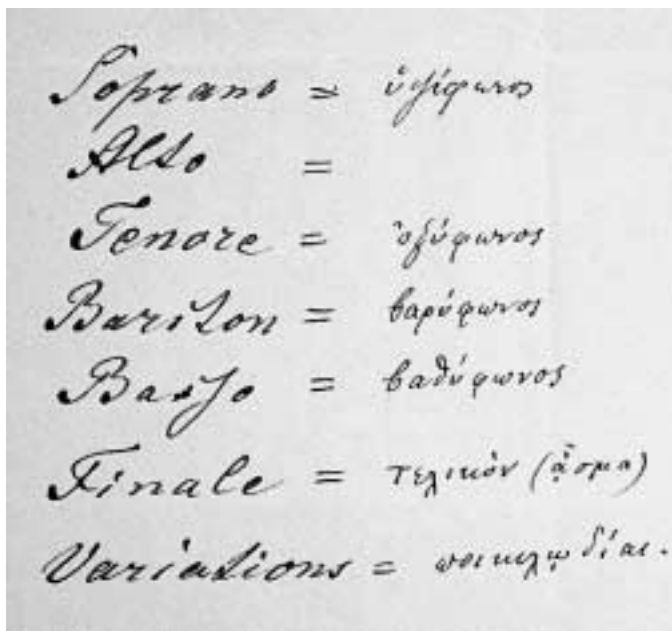 Soprano = ὑψίφωνος
Alto =
Tenore = ὀξύφωνος
Bariton = βαρύφωνος
Basso = βαθύφωνος
Finale = τελικὸν (ᾆσμα)
Variations = ποικιλῳδίαι.